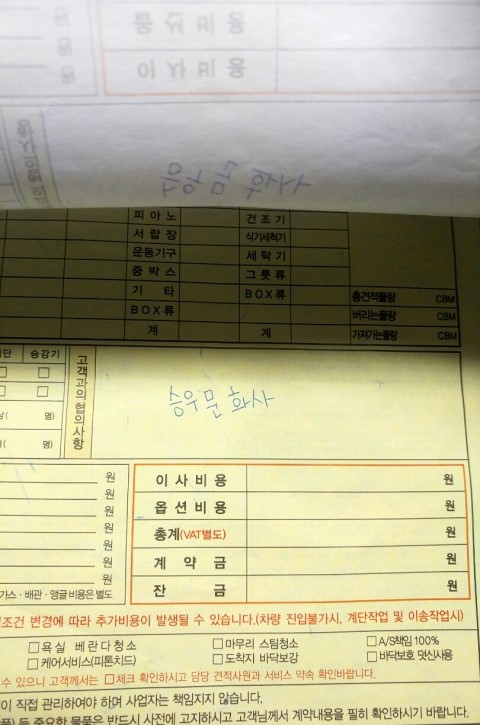 이 사 비 용
피 아 노 건 조 기
서 랍 장 식기세척기
운동기구 세 탁 기
중 박 스 그 릇 류
기 타 BOX류 총견적물량 CBM
BOX류 버리는물량 CBM
계 계 가져가는물량 CBM
승강기
□ □
명)
명)
고객과의 협의사항
승우문화사
원
원
원
원
원
원
원
이 사 비 용 원
옵 션 비 용 원
총계(VAT별도) 원
계 약 금 원
잔 금 원
가스·배관·앵글 비용은 별도
조건 변경에 따라 추가비용이 발생될 수 있습니다.(차량 진입불가시, 계단작업 및 이송작업시)
□욕실 베란다청소 □마무리 스팀청소 □A/S책임 100%
□케어서비스(피톤치드) □도착지 바닥보강 □바닥보호 덧신사용
수 있으니 고객께서는 □체크 확인하시고 담당 견적사원과 서비스 약속 확인바랍니다.
이 직접 관리하여야 하며 사업자는 책임지지 않습니다.
품) 등 중요한 물품은 반드시 사전에 고지하시고 고객님께서 계약내용을 필히 확인하시기 바랍니다.